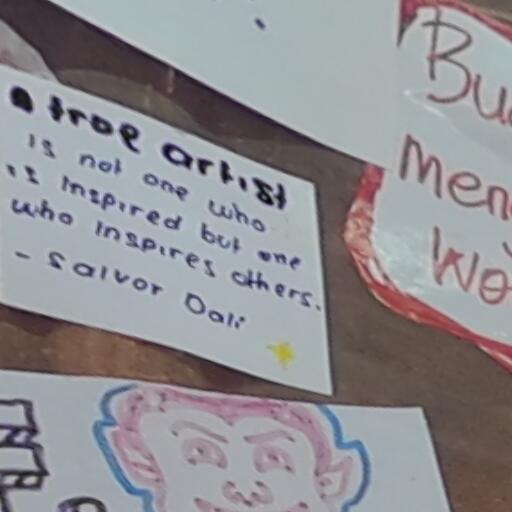 a troe artist
is not one who
is inspired but one
who inspires others.
- salvor Dali
Bu
men
wo